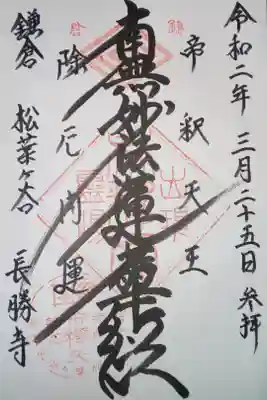 令和二年 三月二十五日 参拝
帝釈天王
南無妙法蓮華経
除厄開運
鎌倉 松葉ヶ谷 長勝寺